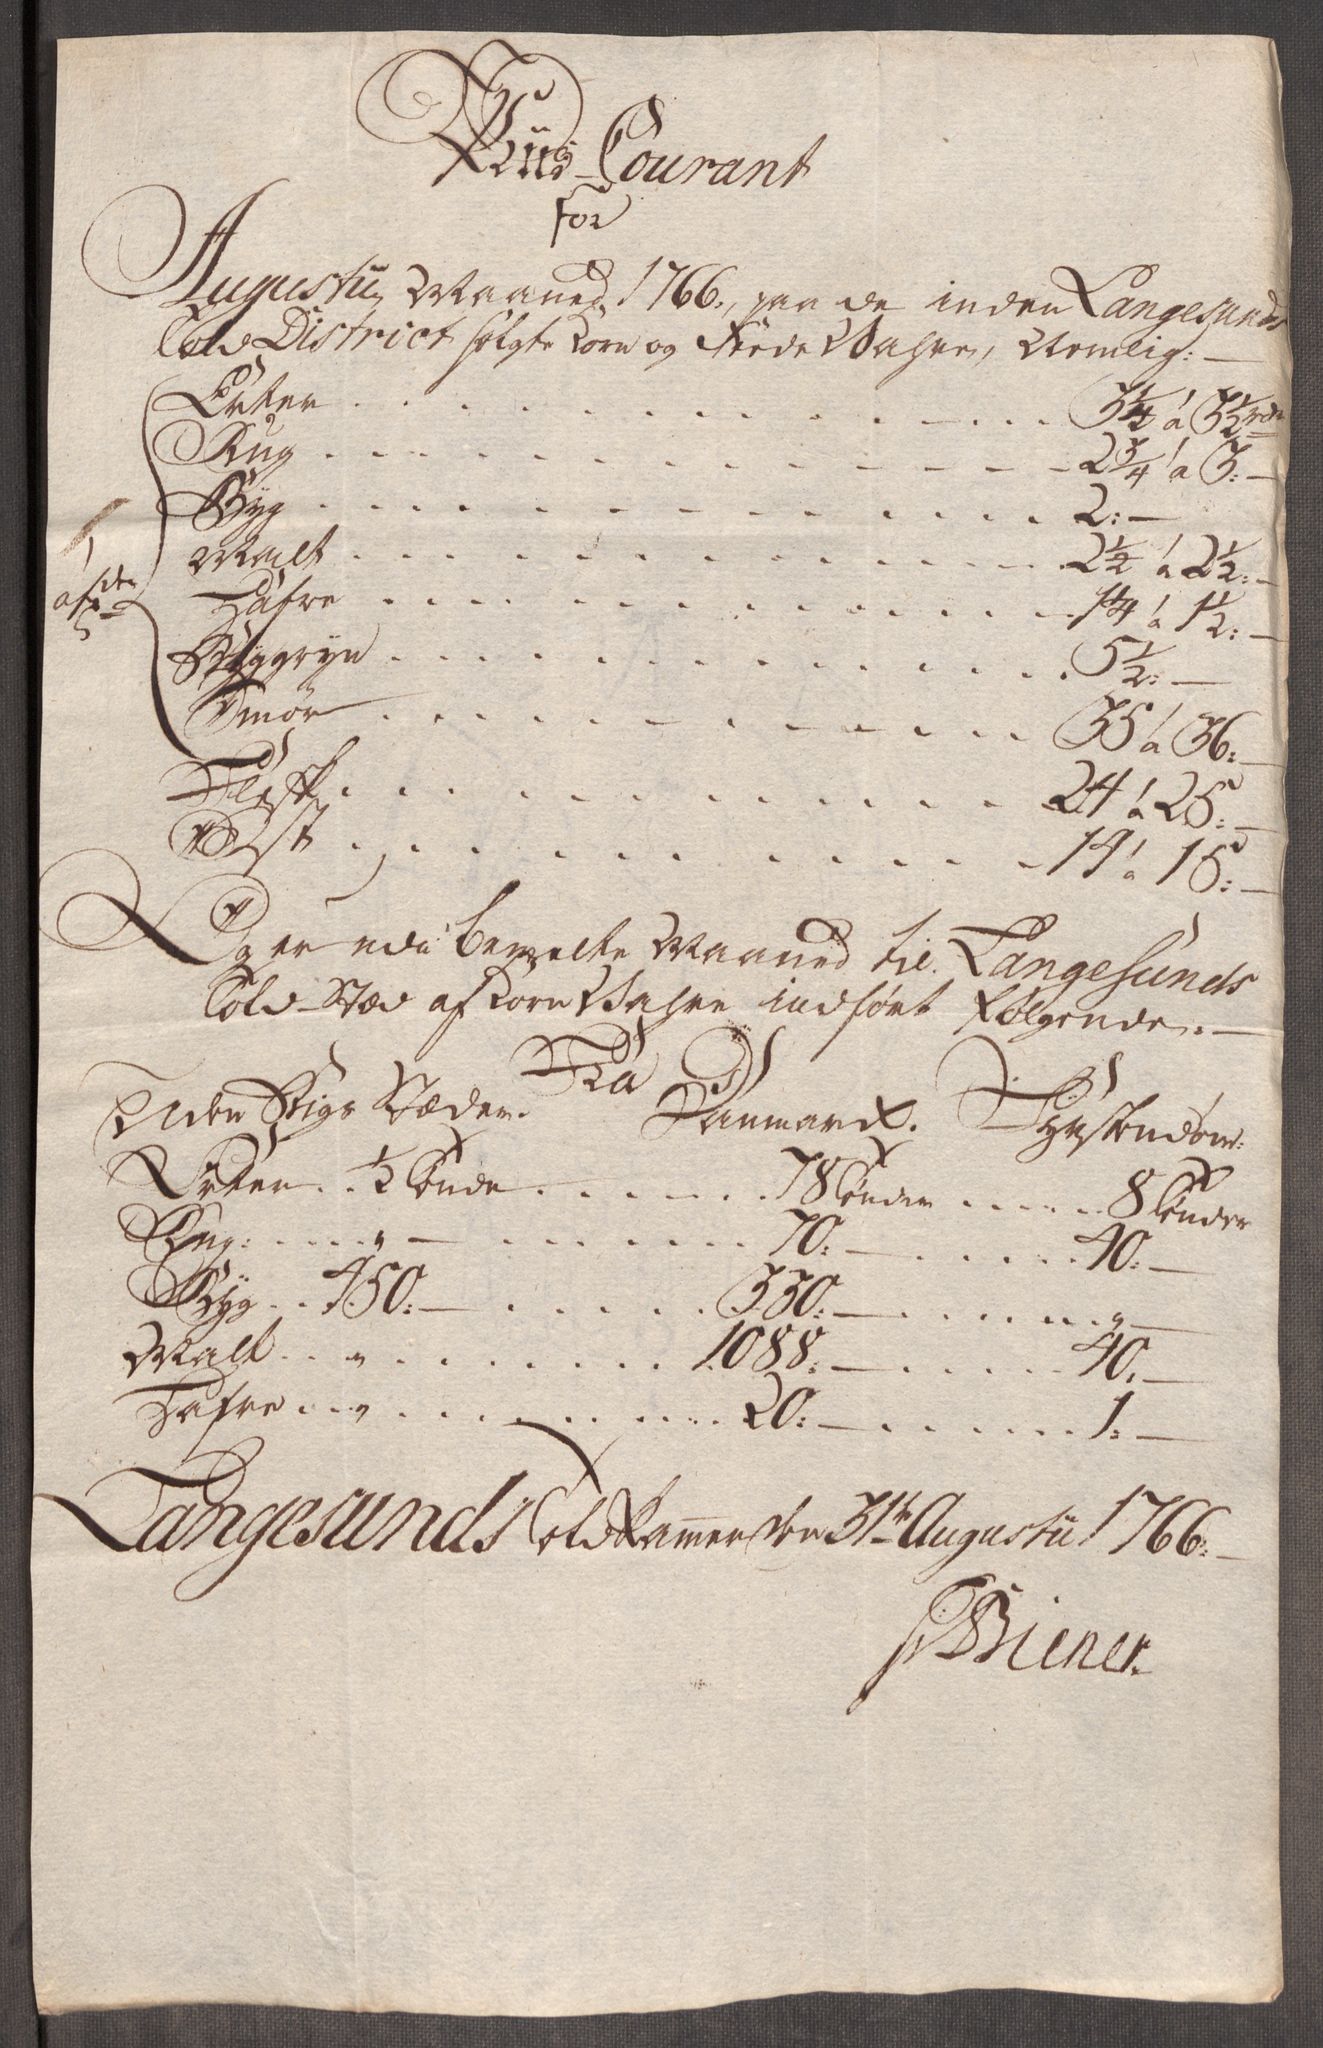 Priis-Courant
for
Augustii Maaned 1766, paa de inden Langesunds
Told District solgte Korn og Fæde Wahre, Nemlig:
Erter . . . 3 1/4 à 3 1/2 rdr
Rug . . . 2 3/4 à 3:
Byg . . . 2:
Malt . . . 2 1/2 à 2 1/2:
Hafre . . . 1 1/4 à 1 1/2:
Byggryn . . . 5 1/2:
Smør . . . 35 à 36:
Flesk . . . 24 à 25:
Ost . . . 14 à 15:
Og er udi bemelte Maaned til Langesunds
Told-Stæd af Korn Wahre indført følgende:
Fra
Uden Rigs Stæder. Danmark. Fyrstendom:
Erter . . 1/2 Tønde . . . 78 Tønder . . . 8 Tønder
Rug: . . . " . . . 70: . . . 40:
Byg . . 450: . . . 330: . . . "
Malt . . " . . . 1088: . . . 40:
Hafre . . " . . . 20: . . . 1:
Langesunds Told Kammer den 31te Augustii 1766:
Biener.